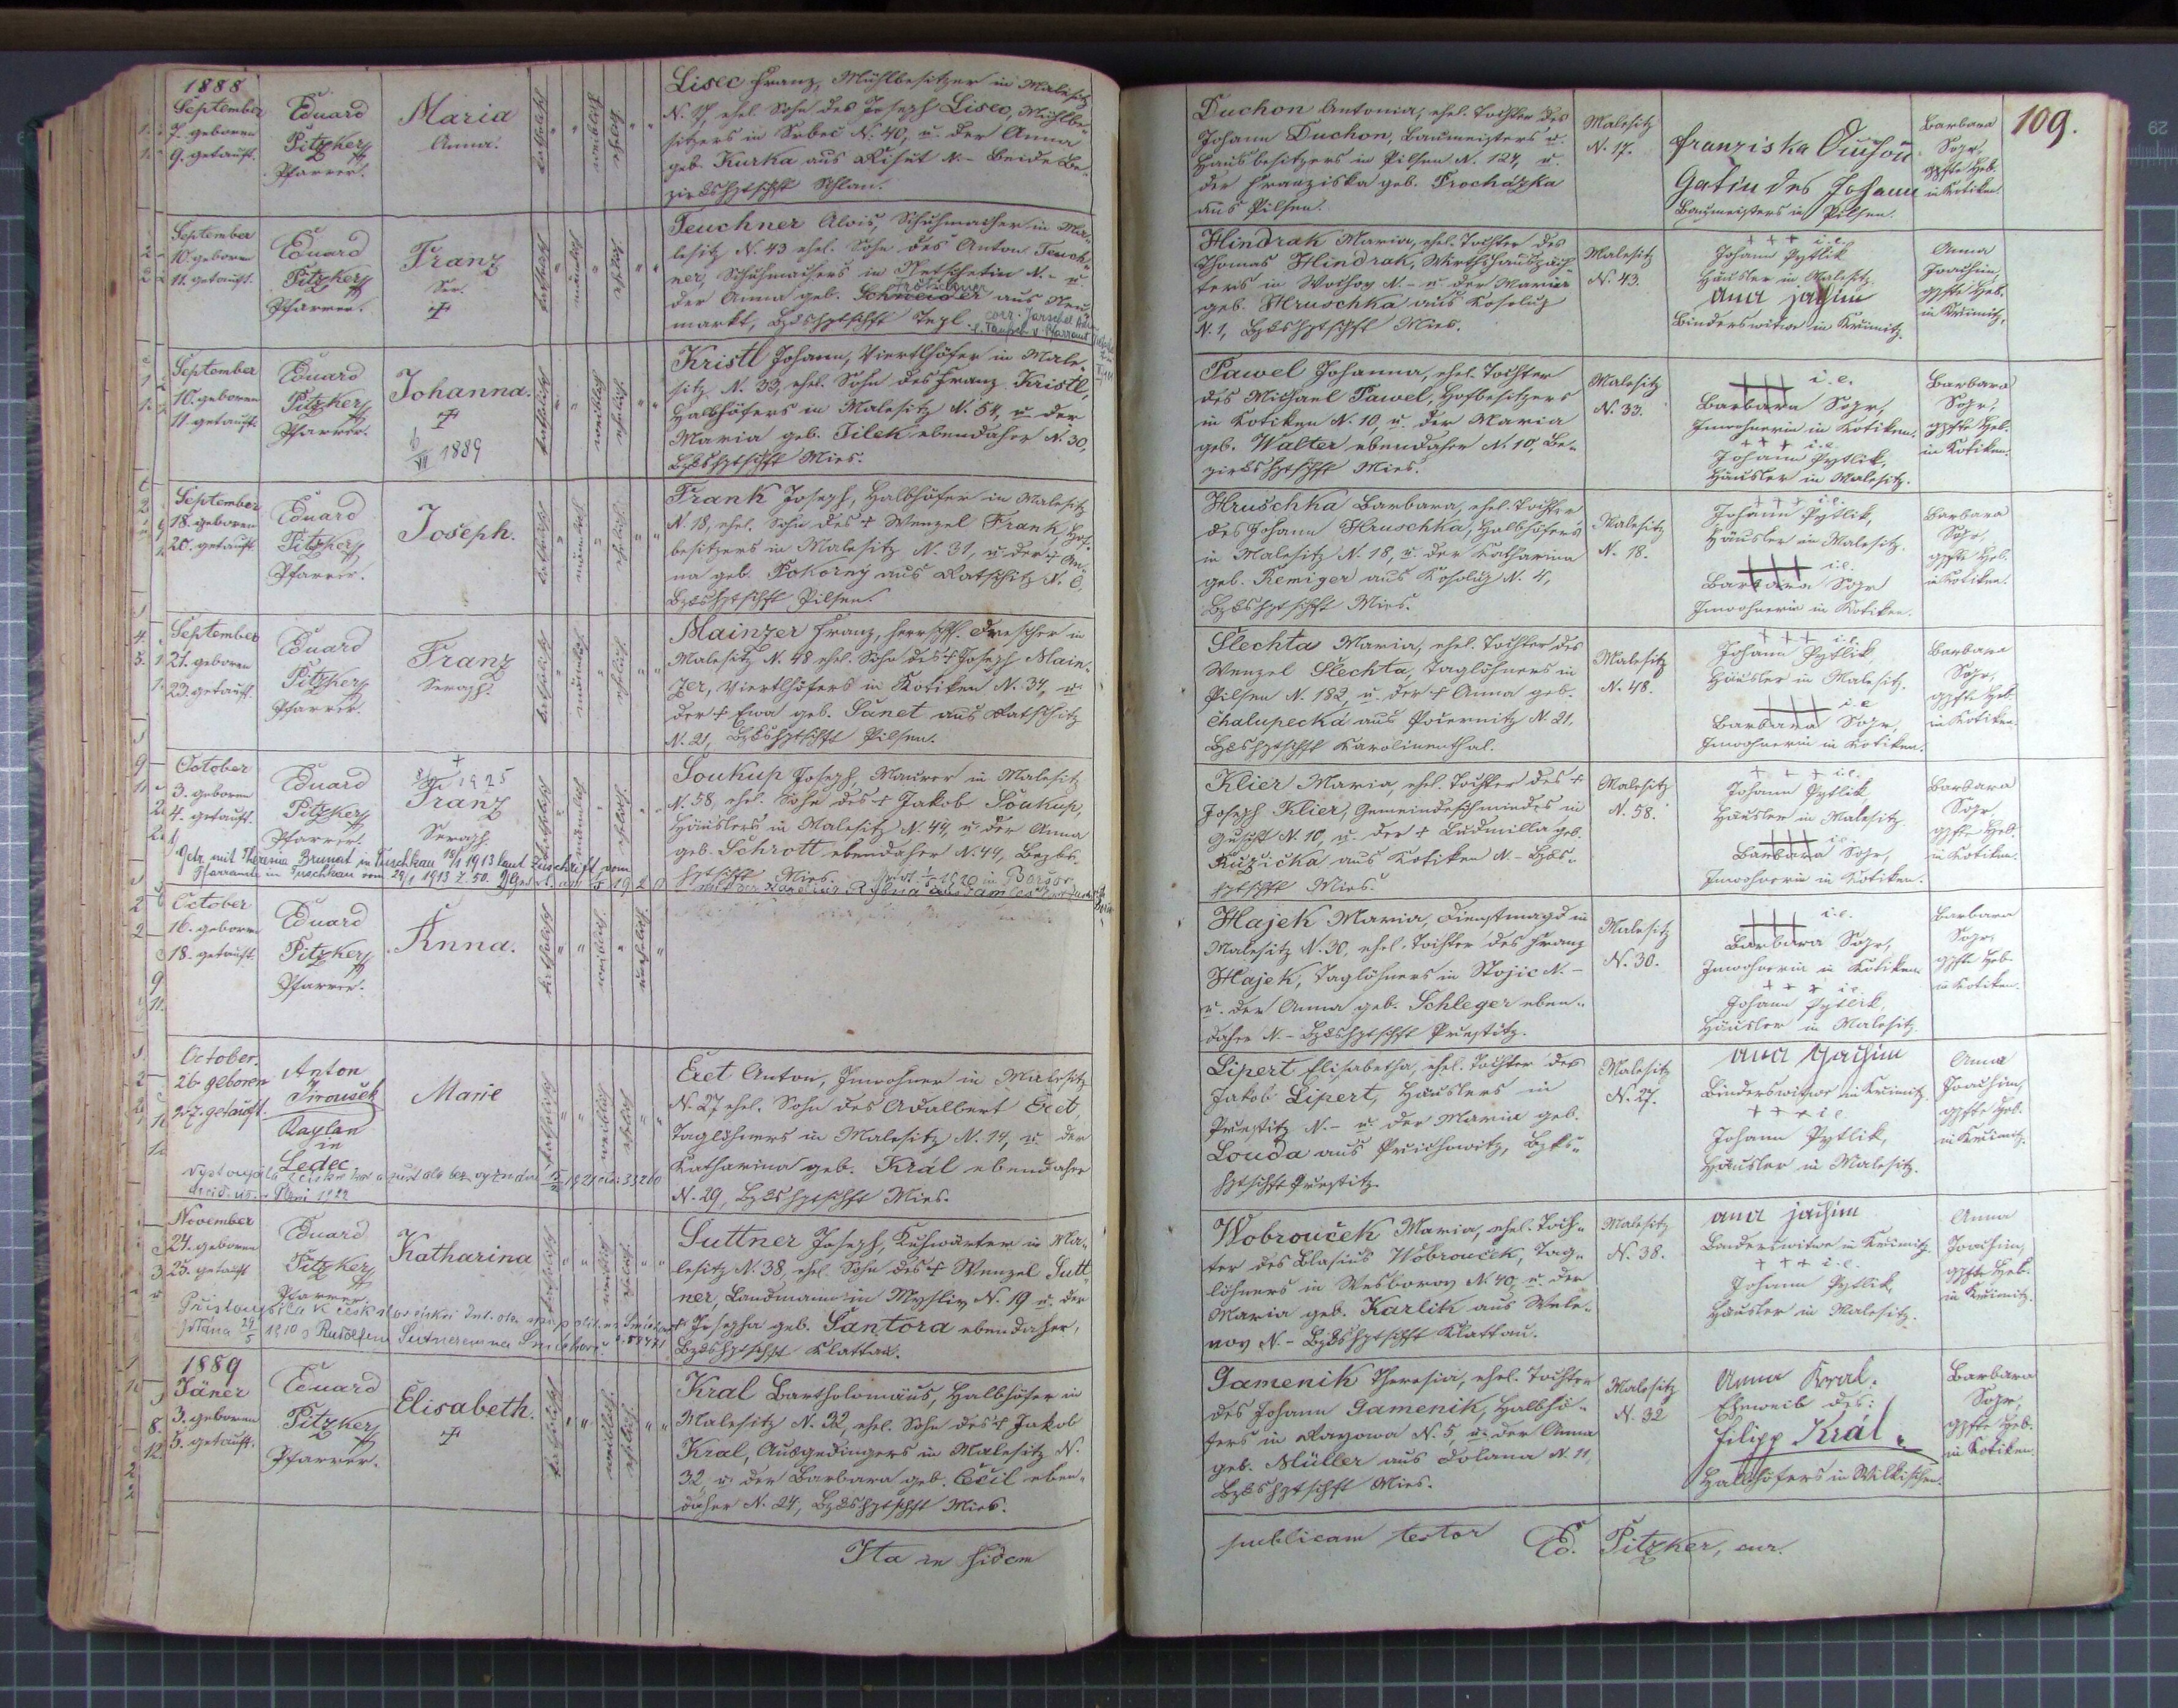 1888
September
7. geboren
9. getauft.
Eduard
Pitzker
Pfarrer.
Maria
Anna.
katholisch
weiblich
ehelich
Lisec Franz, Mühlbesitzer in Malesitz
N. 17, ehel. Sohn des Joseph Lisec, Mühlbe-
sitzers in Srbec N. 40, u. der Anna
geb. Kurka aus Řisut N. - beide Be-
zirkshptschft Schlan.
Duchon Antonia, ehel. Tochter des
Johann Duchon, Baumeisters u.
Hausbesitzers in Pilsen N. 127, u.
der Franziska geb. Procházka
aus Pilsen.
Malesitz
N. 17.
Franziska Duchon
Gatin des Johann
Baumeisters in Pilsen.
Barbara
Sojr,
gpfte Heb.
in Kotiken.
109.
September
10. geboren
11. getauft.
Eduard
Pitzker
Pfarrer.
Franz
Ser.
katholisch
männlich
ehelich
Teuchner Alois, Schuhmacher in Ma-
lesitz N. 43 ehel. Sohn des Anton Teuch-
ner, Schuhmachers in Netschetin N. - u.
der Anna geb. Schneider aus Neu-
markt, Bzkshptschft Tepl.
Hindrak Maria, ehel. Tochter des
Thomas Hindrak, Wirtschaftspäch-
ters in Wochov N. - u. der Maria
geb. Hruschka aus Kosoluz
N. 1, Bzkshptschft Mies.
Malesitz
N. 43.
+ + + i.e.
Johann Pytlik
Häusler in Malesitz.
ana jachim
Binderswitwe in Krimitz.
Anna
Joachim,
gpfte Heb.
in Krimitz.
September
10. geboren
11. getauft.
Eduard
Pitzker
Pfarrer.
Johanna.
6/VI 1889
katholisch
weiblich
ehelich
Kristl Johann, Viertlhöfer in Male-
sitz N. 33, ehel. Sohn des Franz Kristl,
Halbhöfers in Malesitz N. 54, u. der
Maria geb. Jilek ebendaher N. 30,
Bzkshptschft Mies.
Pawel Johanna, ehel. Tochter
des Michael Pawel, Hofbesitzers
in Kotiken N. 10, u. der Maria
geb. Walter ebendaher N. 10, Be-
zirkshptschft Mies.
Malesitz
N. 33.
+++ i.e.
Barbara Sojr,
Inwohnerin in Kotiken.
+ + + i.e.
Johann Pytlik,
Häusler in Malesitz.
Barbara
Sojr,
gpfte Heb.
in Kotiken.
September
18. geboren
20. getauft
Eduard
Pitzker
Pfarrer.
Joseph.
katholisch
männlich
ehelich
Frank Joseph, Halbhöfer in Malesitz
N. 18, ehel. Sohn des + Wenzel Frank, Hof-
besitzers in Malesitz N. 31, u. der + An-
na geb. Pokorný aus Ratschitz N. 6,
Bzkshptschft Pilsen.
Hruschka Barbara, ehel. Tochter
des Johann Hruschka, Halbhöfers
in Malesitz N. 18, u. der Katharina
geb. Remiger aus Kosoluz N. 4,
Bzkshptschft Mies.
Malesitz
N. 18.
+ + + i.e.
Johann Pytlik,
Häusler in Malesitz.
+++ i.e.
Barbara Sojr
Inwohnerin in Kotiken.
Barbara
Sojr,
gpfte Heb.
in Kotiken.
September
21. geboren
23. getauft.
Eduard
Pitzker
Pfarrer.
Franz
Seraph.
katholisch
männlich
ehelich
Mainzer Franz, herrschft. Drescher in
Malesitz N. 48 ehel. Sohn des + Joseph Main-
zer, Viertlhöfers in Kotiken N. 34, u.
der + Ewa geb. Sanet aus Ratschitz
N. 21, Bzkshptschft Pilsen.
Slechta Maria, ehel. Tochter des
Wenzel Slechta, Taglöhners in
Pilsen N. 182, u. der + Anna geb.
Chalupecká aus Počernitz N. 21,
Bzkshptschft Karolinenthal.
Malesitz
N. 48.
+ + + i.e.
Johann Pytlik
Häusler in Malesitz.
+++ i.e.
Barbara Sojr,
Inwohnerin in Kotiken.
Barbara
Sojr,
gpfte Heb.
in Kotiken.
October
3. geboren
4. getauft.
Eduard
Pitzker
Pfarrer.
1925
Franz
Seraph
katholisch
männlich
ehelich
Soukup Joseph, Maurer in Malesitz
N. 58, ehel. Sohn des + Jakob Soukup,
Häuslers in Malesitz N. 44, u. der Anna
geb. Schrott ebendaher N. 44, Bezks-
hptschft Mies.
Getr. mit Theresia Brunat in Tuschkau 18/1 1913 laut Zuschrift vom
Pfarramte in Tuschkau vom 29/1 1913 Z. 50.
Klier Maria, ehel. Tochter des +
Joseph Klier, Gemeindeschmiedes in
Guscht N. 10, u. der + Ludmilla geb.
Ružička aus Kotiken N. - Bzks-
hptschft Mies.
Malesitz
N. 58.
+ + + i.e.
Johann Pytlik
Häusler in Malesitz
+++ i.e.
Barbara Sojr,
Inwohnerin in Kotiken.
Barbara
Sojr,
gpfte Heb.
in Kotiken.
October
16. geboren
18. getauft
Eduard
Pitzker
Pfarrer.
Anna.
katholisch
weiblich
unehelich
Hajek Maria, Dienstmagd in
Malesitz N. 30, ehel. Tochter des Franz
Hajek, Taglöhners in Stojic N. -
u. der Anna geb. Schleger eben-
daher N. - Bzkshptschft Prestitz.
Malesitz
N. 30.
+++ i.e.
Barbara Sojr,
Inwohnerin in Kotiken
+ + + i.e.
Johann Pytlik,
Häusler in Malesitz
Barbara
Sojr,
gpfte Heb.
in Kotiken.
October.
26 geboren
27. getauft.
Anton
Jirousek
Kaplan
in
Ledec
Marie
katholisch
weiblich
ehelich
Eret Anton, Inwohner in Malesitz
N. 27 ehel. Sohn des Adalbert Eret,
Taglöhners in Malesitz N. 14, u. der
Katharina geb. Král ebendaher
N. 29, Bzkshptschft Mies.
Lipert Elisabetha, ehel. Tochter des
Jakob Lipert, Häuslers in
Prestitz N. - u. der Maria geb.
Louda aus Prichowitz, Bzks-
hptschft Prestitz.
Malesitz
N. 27.
ana jachim
Binderswitwe in Krimitz.
+ + + i.e.
Johann Pytlik,
Häusler in Malesitz.
Anna
Joachim,
gpfte Heb.
in Krimitz.
November
24. geboren
25. getauft
Eduard
Pitzker
Pfarrer.
Katharina
katholisch
weiblich
ehelich
Suttner Joseph, Kuhwärter in Ma-
lesitz N. 38, ehel. Sohn des + Wenzel Sutt-
ner, Landmanns in Mysliv N. 19 u. der
+ Josepha geb. Santora ebendaher,
Bzkshptschft Klattau.
Wobrouček Maria, ehel. Toch-
ter des Blasius Wobrouček, Tag-
löhners in Wesborov N. 40, u. der
Maria geb. Karlik aus Wele-
nov N. - Bzkshptschft Klattau.
Malesitz
N. 38.
ana jachim
Binderswitwe in Krimitz.
+ + + i.e.
Johann Pytlik,
Häusler in Malesitz.
Anna
Joachim,
gpfte Heb.
in Krimitz.
1889
Jäner
3. geboren
5. getauft.
Eduard
Pitzker
Pfarrer.
Elisabeth.
katholisch
weiblich
ehelich.
Kral Bartholomäus, Halbhöfer in
Malesitz N. 32, ehel. Sohn des + Jakob
Kral, Ausgedingers in Malesitz N.
32, u. der Barbara geb. Cecil eben-
daher N. 24, Bzkshptschft Mies.
Jamenik Theresia, ehel. Tochter
des Johann Jamenik, Halbhö-
fers in Rayowa N. 5, u. der Anna
geb. Müller aus Dolana N. 11,
Bzkshptschft Mies.
Malesitz
N. 32
Anna Kral.
Eheweib des:
Filipp Král.
Halbhöfers in Wilkischen.
Barbara
Sojr,
gpfte Heb.
in Kotiken.
Ita in fidem
publicam testor Ed. Pitzker, cur.